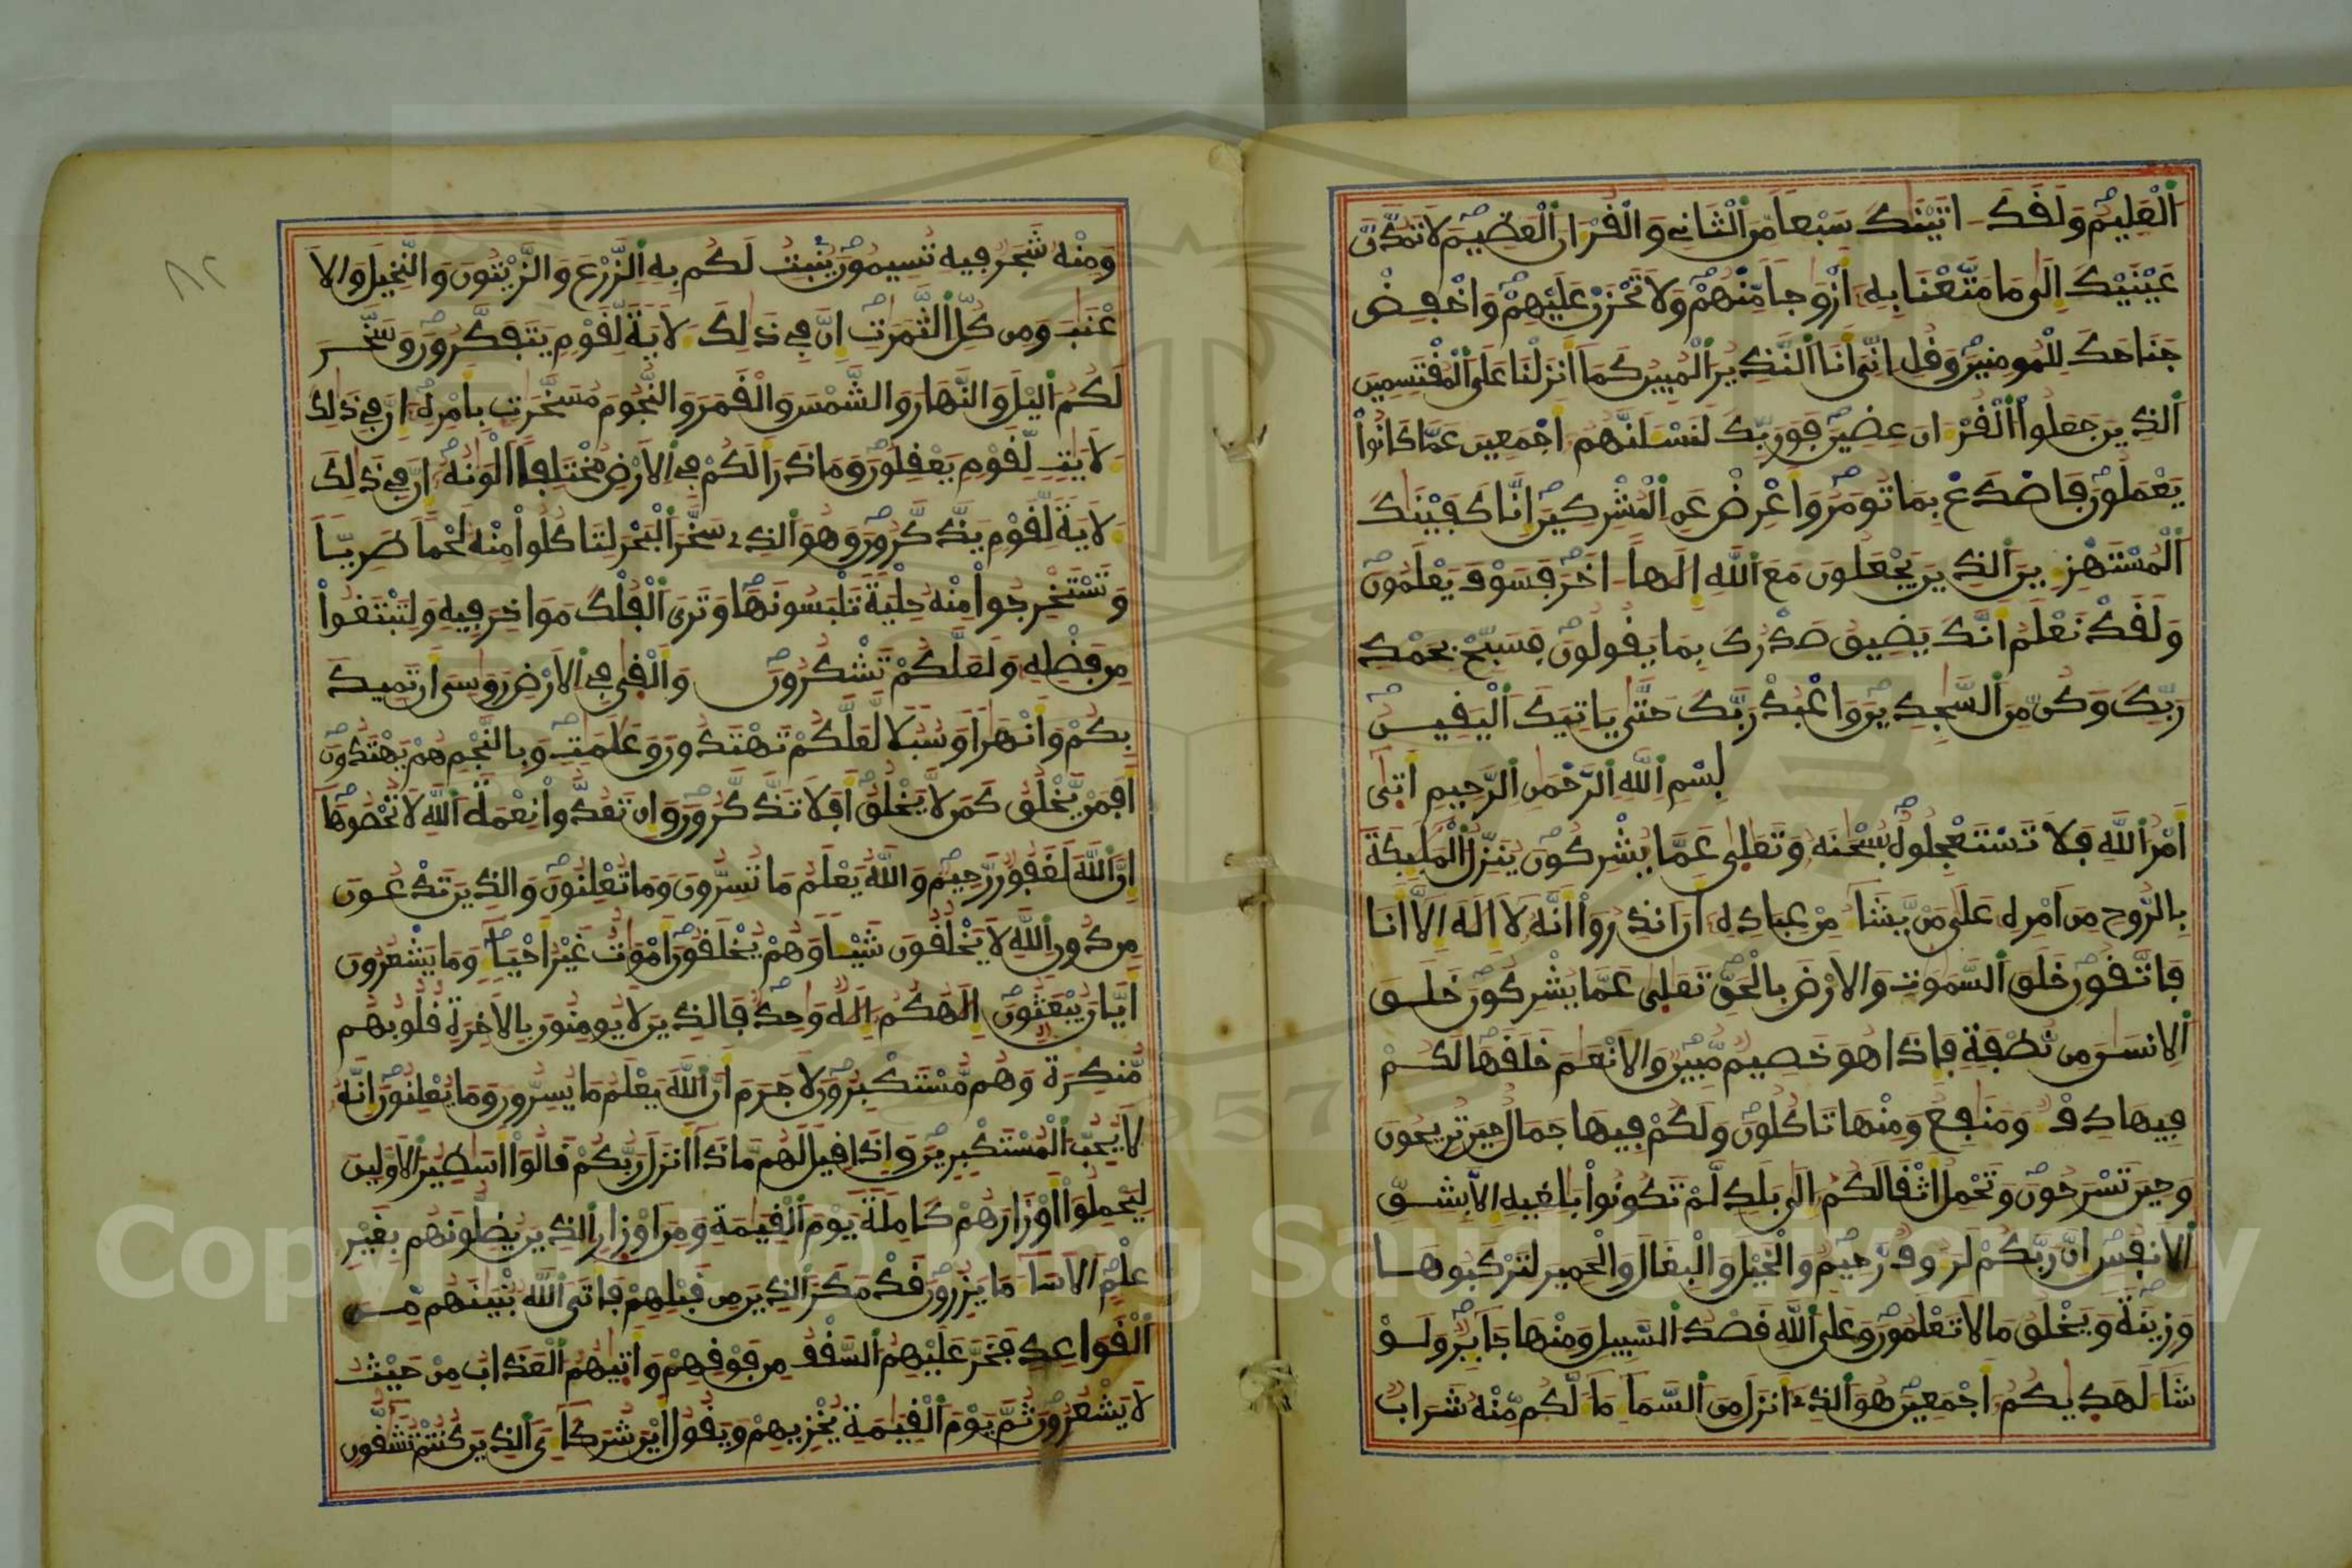 العليم ولقد اتينك سبعا من المثاني والقران العظيم لا تمدن
عينيك الى ما متعنا به أزوجا منهم ولا تحزن عليهم واخفض
جناحك للمومنين وقل اني انا النذير المبين كما انزلنا على المقتسمين
الذين جعلوا القران عضين فوربك لنسلنهم اجمعين عما كانوا
يعملون فاصدع بما تومر واعرض عن المشركين انا كفينك
المستهزين الذين يجعلون مع الله الها اخر فسوف يعلمون
ولقد نعلم انك يضيق صدرك بما يقولون فسبح بحمد
ربك وكن من السجدين واعبد ربك حتى ياتيك اليقين
بسم الله الرحمن الرحيم اتى
امر الله فلا تستعجلوه سبحنه وتعلى عما يشركون ينزل الملئكة
بالروح من امره على من يشا من عباده ان انذروا انه لا اله الا انا
فاتقون خلق السموت والارض بالحق تعلى عما يشركون خلق
الانسن من نطفة فاذا هو خصيم مبين والانعم خلقها لكم
فيها دف ومنفع ومنها تاكلون ولكم فيها جمال حين تريحون
وحين تسرحون وتحمل اثقالكم الى بلد لم تكونوا بالغيه الا بشق
الانفس ان ربكم لروف رحيم والخيل والبغال والحمير لتركبوها
وزينة ويخلق ما لا تعلمون وعلى الله قصد السبيل ومنها جائر ولو
شا لهديكم اجمعين هو الذي انزل من السما ما لكم منه شراب
٨٢
ومنه شجر فيه تسيمون ينبت لكم به الزرع والزيتون والنخيل والا
عنب ومن كل الثمرت ان في ذلك لاية لقوم يتفكرون وسخر
لكم اليل والنهار والشمس والقمر والنجوم مسخرت بامره ان في ذلك
لايت لقوم يعقلون وما ذرا لكم في الارض مختلفا الونه ان في ذلك
لاية لقوم يذكرون وهو الذي سخر البحر لتاكلوا منه لحما طريا
وتستخرجوا منه حلية تلبسونها وترى الفلك مواخر فيه ولتبتغوا
من فضله ولعلكم تشكرون والقى في الارض روسي ان تميد
بكم وانهرا وسبلا لعلكم تهتدون وعلمت وبالنجم هم يهتدون
افمن يخلق كمن لا يخلق افلا تذكرون وان تعدوا نعمة الله لا تحصوها
ان الله لغفور رحيم والله يعلم ما تسرون وما تعلنون والذين تدعون
من دون الله لا يخلقون شيئا وهم يخلقون اموت غير احيا وما يشعرون
ايان يبعثون الهكم اله وحد فالذين لا يومنون بالاخرة قلوبهم
منكرة وهم مستكبرون لا جرم ان الله يعلم ما يسرون وما يعلنون انه
لا يحب المستكبرين واذا قيل لهم ماذا انزل ربكم قالوا اسطير الاولين
ليحملوا اوزارهم كاملة يوم القيمة ومن اوزار الذين يضلونهم بغير
علم الا سا ما يزرون قد مكر الذين من قبلهم فاتى الله بنينهم من
القواعد فخر عليهم السقف من فوقهم واتيهم العذاب من حيث
لا يشعرون ثم يوم القيمة يخزيهم ويقول اين شركاي الذين كنتم تشقون
Copyright © King Saud University
1957